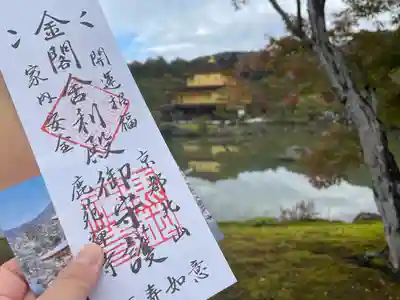 金閣舎利殿御守護
開運招福
家内安全
京都北山
鹿苑禅寺
如意